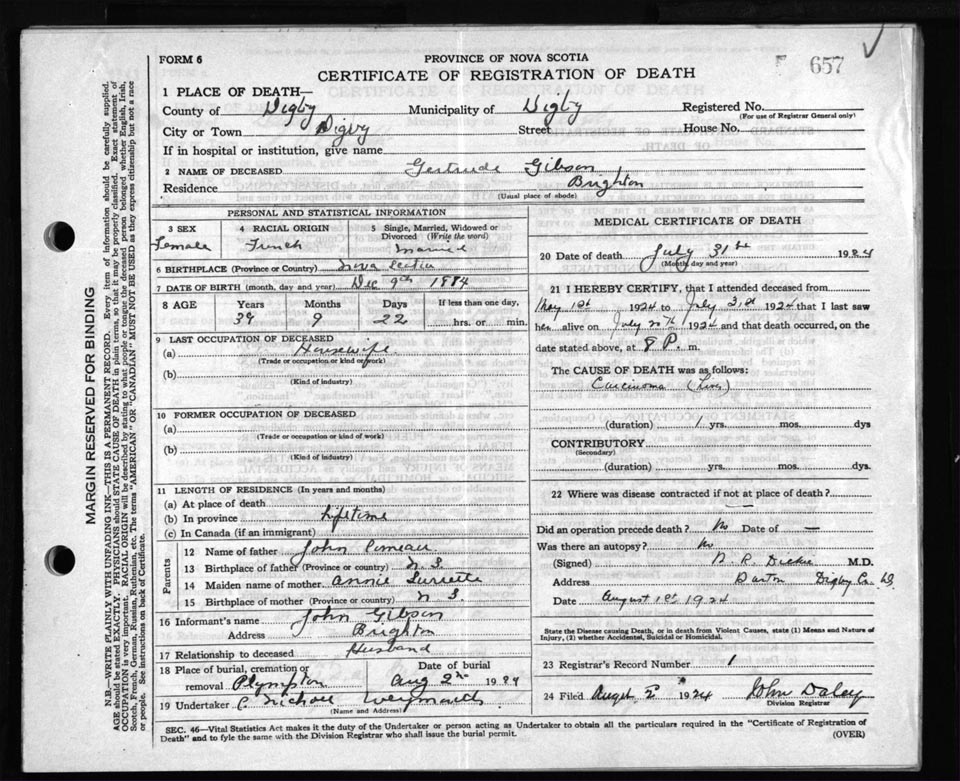 FORM 6
PROVINCE OF NOVA SCOTIA
F 657
CERTIFICATE OF REGISTRATION OF DEATH
1 PLACE OF DEATH—
County of Digby Municipality of Digby Registered No.
(For use of Registrar General only)
City or Town Digby Street House No.
If in hospital or institution, give name
2 NAME OF DECEASED Gertrude Gibson
Residence Brighton
(Usual place of abode)
PERSONAL AND STATISTICAL INFORMATION
3 SEX 4 RACIAL ORIGIN 5 Single, Married, Widowed or Divorced (Write the word)
Female French Married
6 BIRTHPLACE (Province or Country) Nova Scotia
7 DATE OF BIRTH (month, day and year) Dec 9th 1884
8 AGE Years Months Days If less than one day,
39 9 22 hrs. or min.
9 LAST OCCUPATION OF DECEASED
(a) Housewife
(Trade or occupation or kind of work)
(b)
(Kind of industry)
10 FORMER OCCUPATION OF DECEASED
(a)
(Trade or occupation or kind of work)
(b)
(Kind of industry)
11 LENGTH OF RESIDENCE (In years and months)
(a) At place of death
(b) In province Lifetime
(c) In Canada (if an immigrant)
Parents
12 Name of father John Comeau
13 Birthplace of father (Province or country) N.S.
14 Maiden name of mother Annie Surrette
15 Birthplace of mother (Province or country) N S.
16 Informant's name John Gibson
Address Brighton
17 Relationship to deceased Husband
18 Place of burial, cremation or removal Plympton
Date of burial Aug 2nd 1924
19 Undertaker Weymouth
(Name and Address)
MEDICAL CERTIFICATE OF DEATH
20 Date of death July 31st 1924
(Month, day and year)
21 I HEREBY CERTIFY, that I attended deceased from
May 1st 1924 to July 31st 1924 that I last saw
her alive on July 1924 and that death occurred, on the
date stated above, at 8 P. m.
The CAUSE OF DEATH was as follows:
Carcinoma (Liver)
(duration) 1 yrs. mos. dys
CONTRIBUTORY
(Secondary)
(duration) yrs. mos. dys.
22 Where was disease contracted if not at place of death?
Did an operation precede death? No Date of —
Was there an autopsy? No
(Signed) Dickie M.D.
Address Barton Digby Co.
Date August 1st 1924
State the Disease causing Death, or in death from Violent Causes, state (1) Means and Nature of
Injury, (2) whether Accidental, Suicidal or Homicidal.
23 Registrar's Record Number 1
24 Filed August 2 1924 John Daley
Division Registrar
SEC. 46—Vital Statistics Act makes it the duty of the Undertaker or person acting as Undertaker to obtain all the particulars required in the "Certificate of Registration of
Death" and to fyle the same with the Division Registrar who shall issue the burial permit.
(OVER)
MARGIN RESERVED FOR BINDING
N.B.—WRITE PLAINLY WITH UNFADING INK—THIS IS A PERMANENT RECORD. Every item of information should be carefully supplied.
AGE should be stated EXACTLY. PHYSICIANS should STATE CAUSE OF DEATH in plain terms, so that it may be properly classified. Exact statement of
OCCUPATION is very important. RACIAL ORIGIN will be described by stating to what people or tongue the deceased person belonged whether English, Irish,
Scotch, French, German, Russian, Ruthenian, etc. The terms "AMERICAN" OR "CANADIAN" MUST NOT BE USED as they express citizenship but not a race
or people. See instructions on back of Certificate.